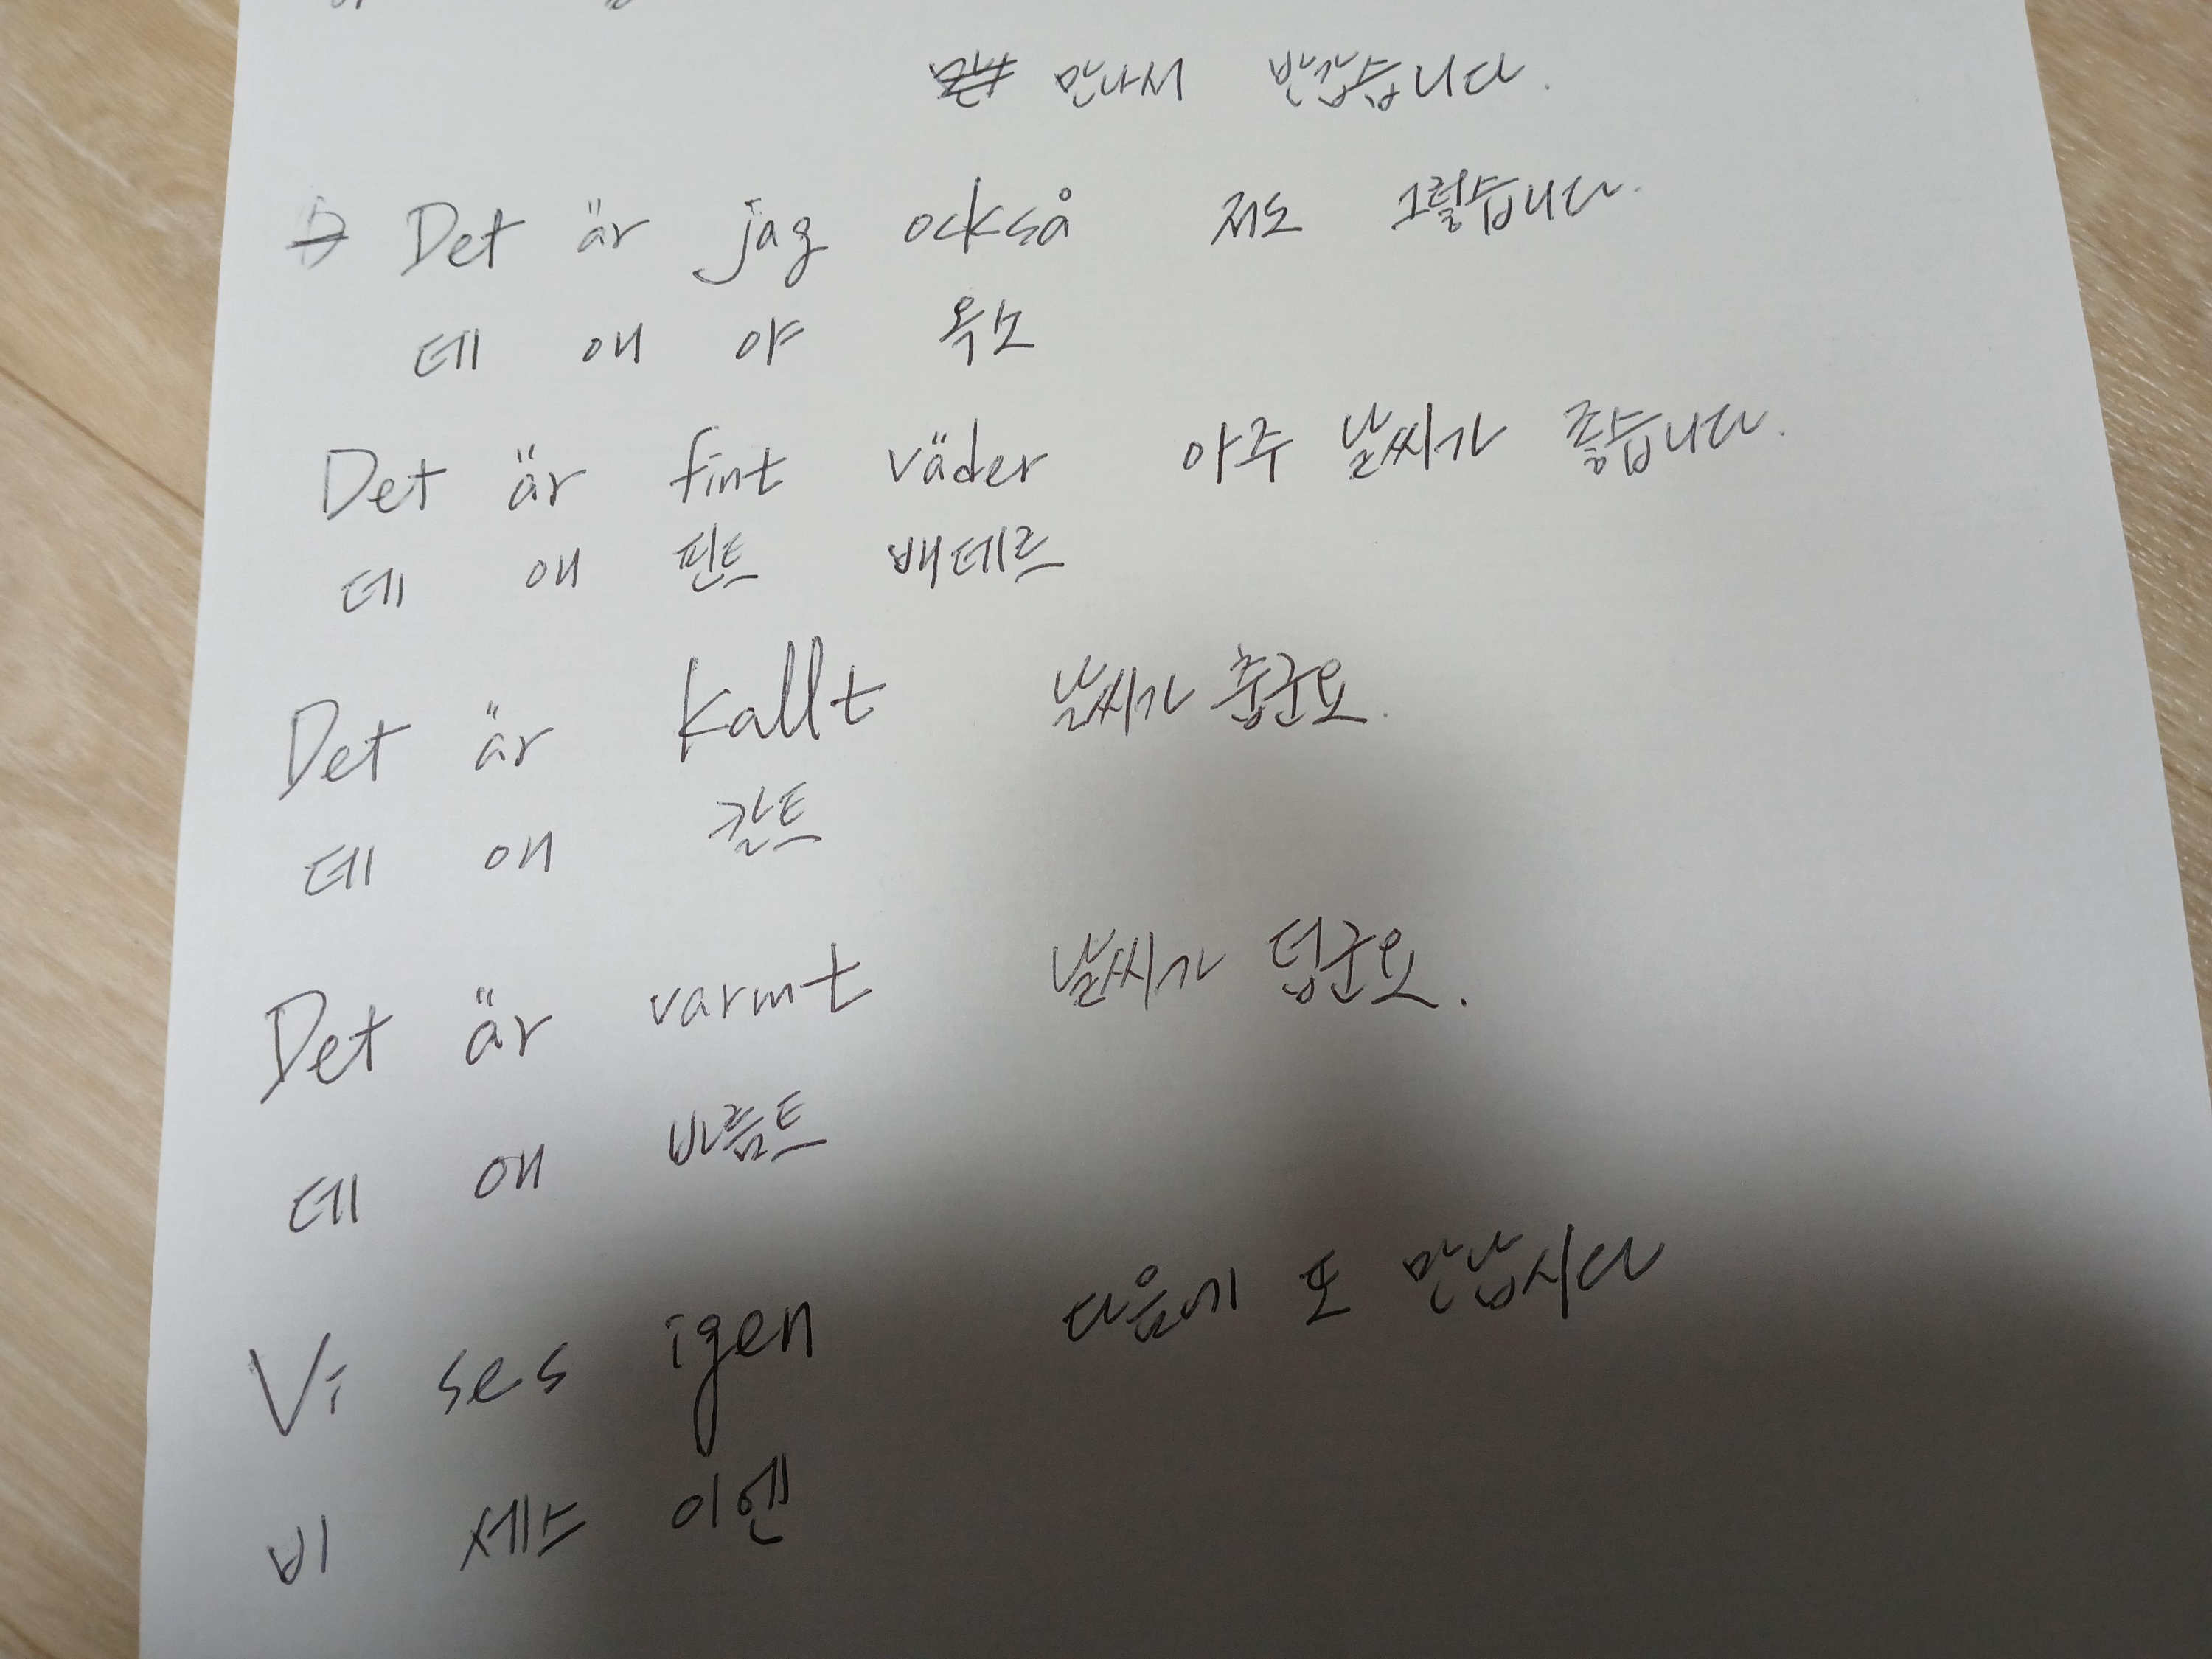 만나서 반갑습니다.
→ Det är jag också 저도 그렇습니다.
데 애 야 옥소
Det är fint väder 아주 날씨가 좋습니다.
데 애 핀트 배데르
Det är kallt 날씨가 춥군요.
데 애 칼트
Det är varmt 날씨가 덥군요.
데 애 바름트
Vi ses igen 다음에 또 만납시다
비 세스 이엔